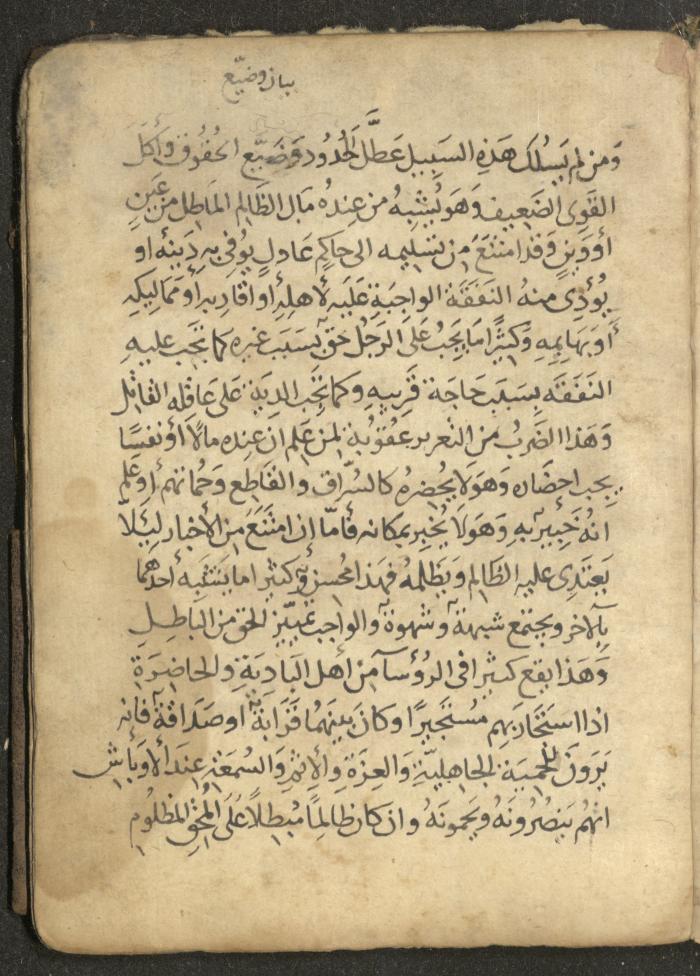 بيان وضيّع
وَمن لم يَسلُك هَذِهِ السَبيل عَطَّل الحُدُود وَضَيَّع الحُقُوق وَأَكَلَ
القَوِى الضَعِيف وَهوَ يُشبِهُ من عِندهُ مَال الظَالِم المَاطِل من عَينٍ
أو دَينٍ وَقد امتنَعَ مِن تسليمه الى حَاكِمٍ عَادلٍ يُوفى به دَينهُ او
يُؤدِى منهُ النَفَقَة الواجبَةِ عَلَيه لأَهلِهِ أو اقاربه أو مَمَاليكهِ
أو بَهَايمِهِ وَكثيرًا مَا يَجبُ عَلَى الرَجُل حَق بسَبَب غيره كما تجَب عليهِ
النَفَقَه بسَبَب حَاجَة قَرِيبِهِ وكما تجَب الدِيَة عَلى عَاقِله القَاتل
وَهَذا الضَربُ من التعرير عقُوبُة لمن عَلم ان عِنده مالًا أو نفسًا
يجب احضَاره وَهوَ لَا يُحضرهُ كالسُرّاق والقَاطع وَحُماتهم أو عَلم
انهُ خَبِير به وَهوَ لَا يُخبِر بمكانه فأمّا إن امتنَعَ مِنَ الأخبار ليَلّا
يَعتَدِى عليه الظَالم وَيَظلمهُ فهذا مُحسن وكثيرا ما يَشتَبه أحدهما
بالآخر ويجتمع شبهَة وشهوة والواجب تمييّز الحق من البَاطل
وَهَذا يقع كثيرا فى الرُؤسآ من أهل البَادِيَةِ والحَاضِرَة
اذا استَجَارَ بهِم مُستَجيرًا او كانَ بينَهمَا قَرَابَة او صَدَاقة فانه
يَرَونَ الحَمِيَّة الجَاهِليّةِ وَالعِزَة وِالإثمِ وَالسُمعَة عِندَ الأوبَاش
انهُم يَنصُرُونَهُ ويَحمونَهُ وان كان ظَالمًا مُبطلًا عَلَى المُحِق المظلُوم